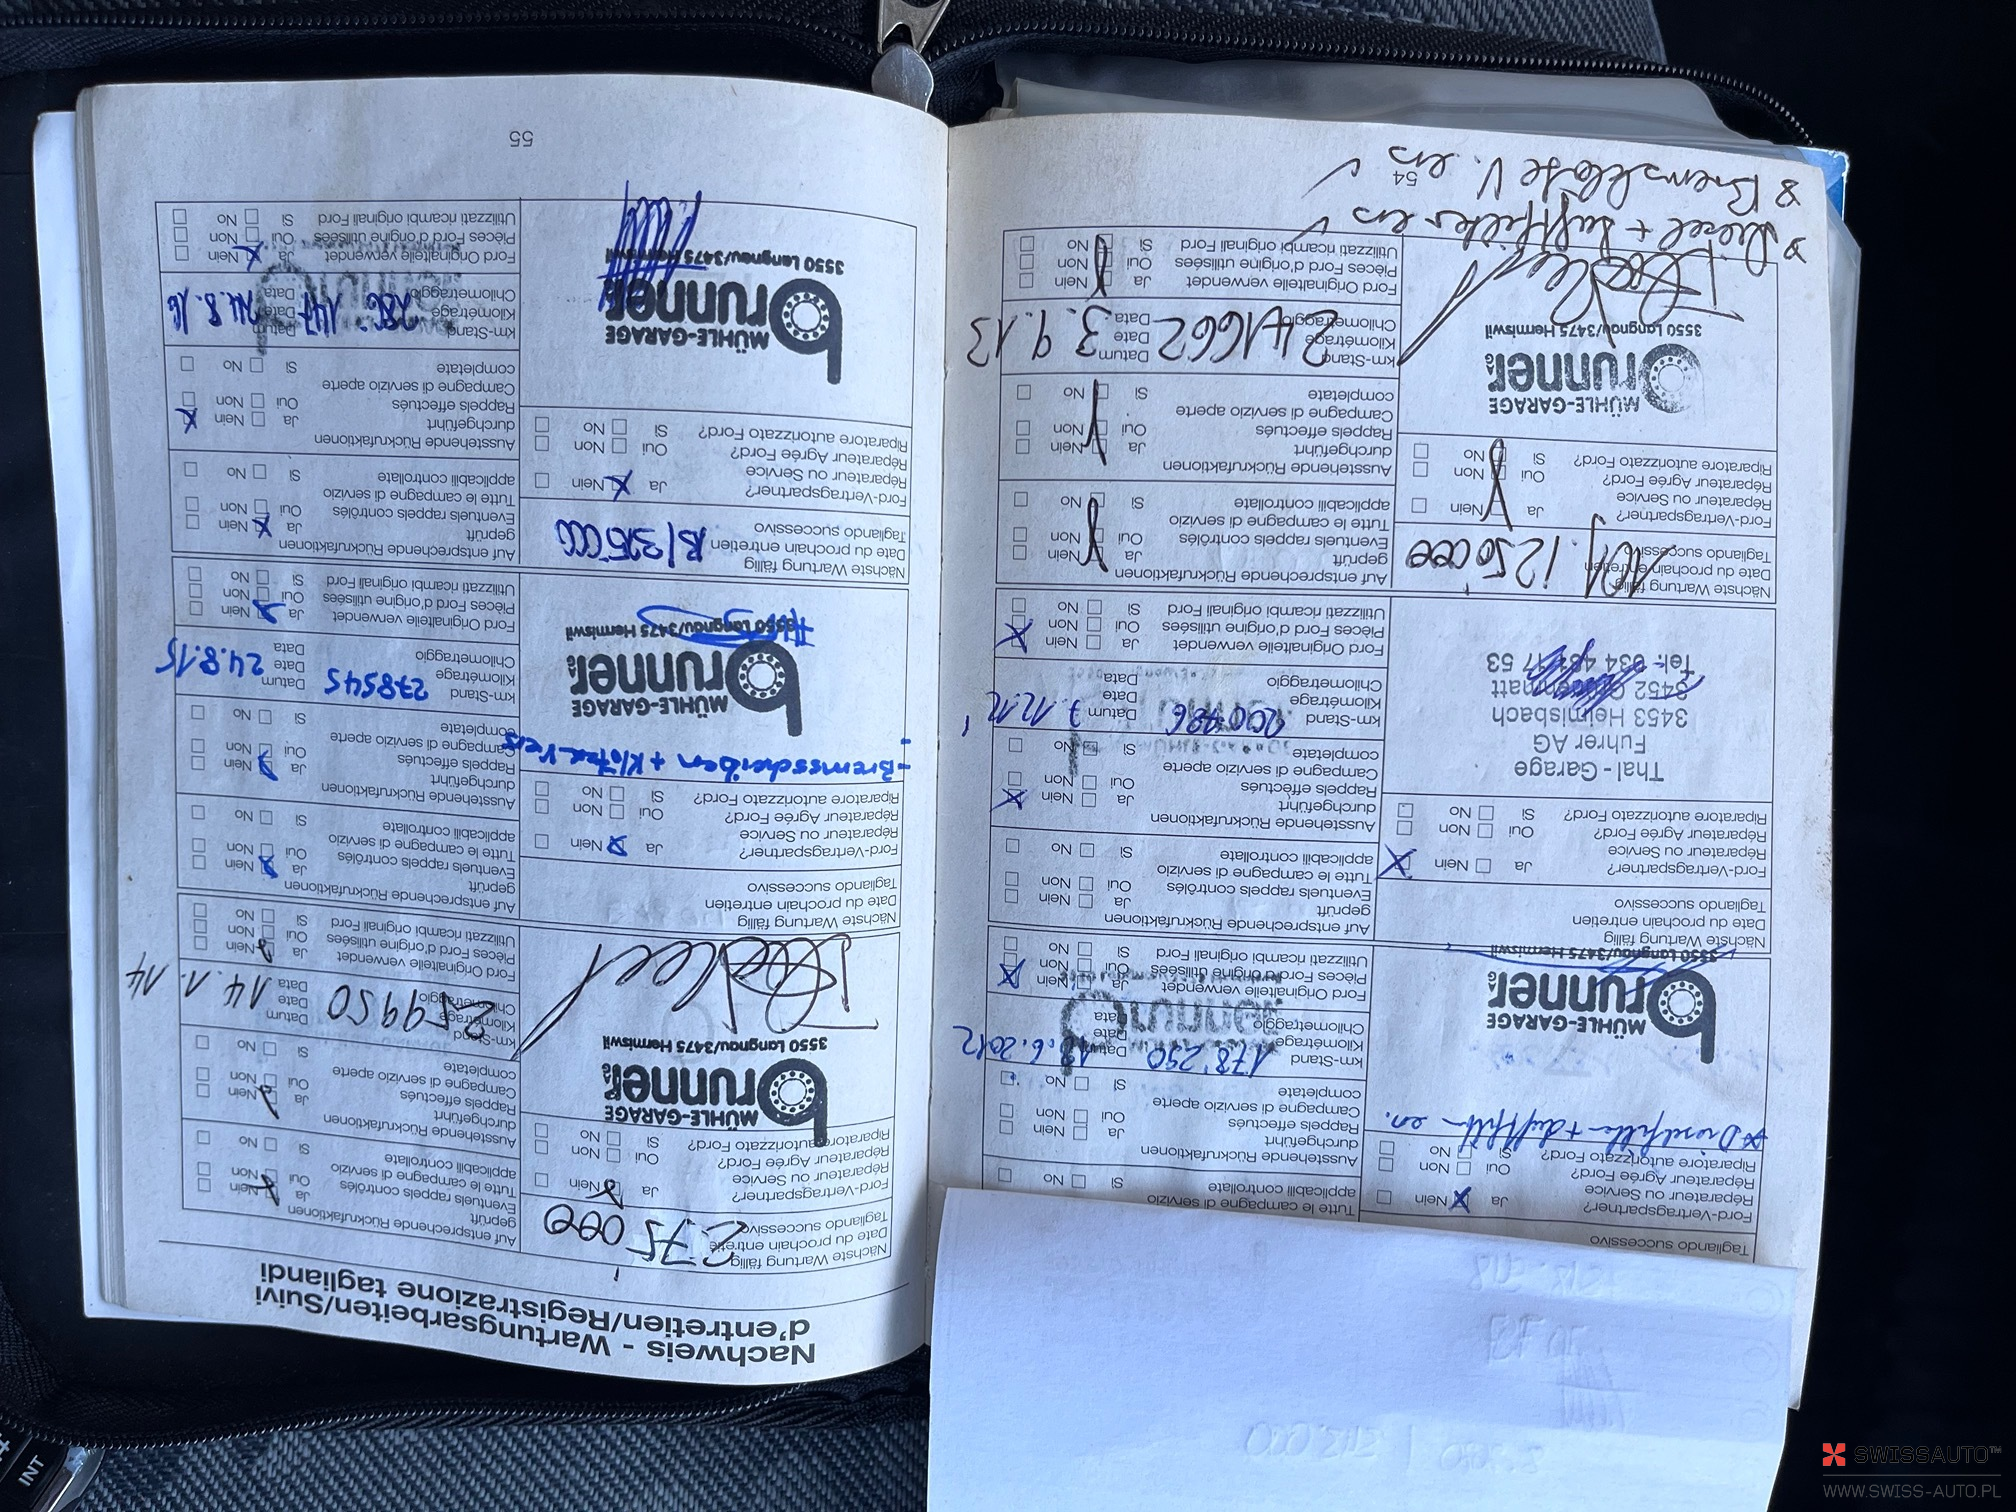 Tagliando successivo
Ford-Vertragspartner?
Réparateur ou Service
Réparateur Agrée Ford?
Riparatore autorizzato Ford?
Ja Nein
Oui Non
Si No
MÜHLE-GARAGE
brunner AG
3550 Langnau/3475 Hermiswil
Tutte le campagne di servizio
applicabili controllate
Si No
Ausstehende Rückrufaktionen
durchgeführt
Rappels effectués
Campagne di servizio aperte
completate
Ja Nein
Oui Non
Si No
km-Stand 178'250 Datum .6.2012
Kilométrage Date
Chilometraggio Data
Ford Originalteile verwendet Ja Nein
Pièces Ford d'origine utilisées Oui Non
Utilizzati ricambi originali Ford Si No
Nächste Wartung fällig
Date du prochain entretien
Tagliando successivo
Ford-Vertragspartner?
Réparateur ou Service
Réparateur Agrée Ford?
Riparatore autorizzato Ford?
Ja Nein
Oui Non
Si No
Thal-Garage
Fuhrer AG
3453 Heimisbach
3452
Tel. 034
Auf entsprechende Rückrufaktionen
geprüft Ja Nein
Eventuels rappels contrôlés Oui Non
Tutte le campagne di servizio
applicabili controllate Si No
Ausstehende Rückrufaktionen
durchgeführt Ja Nein
Rappels effectués Oui Non
Campagne di servizio aperte
completate Si No
km-Stand Datum 7.12.12
Kilométrage Date
Chilometraggio Data
Ford Originalteile verwendet Ja Nein
Pièces Ford d'origine utilisées Oui Non
Utilizzati ricambi originali Ford Si No
Nächste Wartung fällig
Date du prochain entretien
Tagliando successivo
250000
Ford-Vertragspartner? Ja Nein
Réparateur ou Service
Réparateur Agrée Ford? Oui Non
Riparatore autorizzato Ford? Si No
MÜHLE-GARAGE
brunner AG
3550 Langnau/3475 Hermiswil
Auf entsprechende Rückrufaktionen
geprüft Ja Nein
Eventuels rappels contrôlés Oui Non
Tutte le campagne di servizio
applicabili controllate Si No
Ausstehende Rückrufaktionen
durchgeführt Ja Nein
Rappels effectués Oui Non
Campagne di servizio aperte
completate Si No
km-Stand 241662 Datum 3.9.13
Kilométrage Date
Chilometraggio Data
Ford Originalteile verwendet Ja Nein
Pièces Ford d'origine utilisées Oui Non
Utilizzati ricambi originali Ford Si No
Diesel + Luftfilter ers
Bremsklötze V. ers
54
Nachweis - Wartungsarbeiten/Suivi
d'entretien/Registrazione tagliandi
Nächste Wartung fällig
Date du prochain entretien
Tagliando successivo
275000
Ford-Vertragspartner? Ja Nein
Réparateur ou Service
Réparateur Agrée Ford? Oui Non
Riparatore autorizzato Ford? Si No
MÜHLE-GARAGE
brunner AG
3550 Langnau/3475 Hermiswil
Auf entsprechende Rückrufaktionen
geprüft Ja Nein
Eventuels rappels contrôlés Oui Non
Tutte le campagne di servizio
applicabili controllate Si No
Ausstehende Rückrufaktionen
durchgeführt Ja Nein
Rappels effectués Oui Non
Campagne di servizio aperte
completate Si No
km-Stand 259950 Datum 14.1.14
Kilométrage Date
Chilometraggio Data
Ford Originalteile verwendet Ja Nein
Pièces Ford d'origine utilisées Oui Non
Utilizzati ricambi originali Ford Si No
Nächste Wartung fällig
Date du prochain entretien
Tagliando successivo
Ford-Vertragspartner? Ja Nein
Réparateur ou Service
Réparateur Agrée Ford? Oui Non
Riparatore autorizzato Ford? Si No
- Bremsscheiben + Klötze Vers
MÜHLE-GARAGE
brunner AG
3550 Langnau/3475 Hermiswil
Auf entsprechende Rückrufaktionen
geprüft Ja Nein
Eventuels rappels contrôlés Oui Non
Tutte le campagne di servizio
applicabili controllate Si No
Ausstehende Rückrufaktionen
durchgeführt Ja Nein
Rappels effectués Oui Non
Campagne di servizio aperte
completate Si No
km-Stand 278545 Datum 24.8.15
Kilométrage Date
Chilometraggio Data
Ford Originalteile verwendet Ja Nein
Pièces Ford d'origine utilisées Oui Non
Utilizzati ricambi originali Ford Si No
Nächste Wartung fällig
Date du prochain entretien
Tagliando successivo
Ford-Vertragspartner? Ja Nein
Réparateur ou Service
Réparateur Agrée Ford? Oui Non
Riparatore autorizzato Ford? Si No
MÜHLE-GARAGE
brunner AG
3550 Langnau/3475 Hermiswil
Auf entsprechende Rückrufaktionen
geprüft Ja Nein
Eventuels rappels contrôlés Oui Non
Tutte le campagne di servizio
applicabili controllate Si No
Ausstehende Rückrufaktionen
durchgeführt Ja Nein
Rappels effectués Oui Non
Campagne di servizio aperte
completate Si No
km-Stand 147 Datum 24.8.16
Kilométrage Date
Chilometraggio Data
Ford Originalteile verwendet Ja Nein
Pièces Ford d'origine utilisées Oui Non
Utilizzati ricambi originali Ford Si No
55
INT
SWISSAUTO™
WWW.SWISS-AUTO.PL